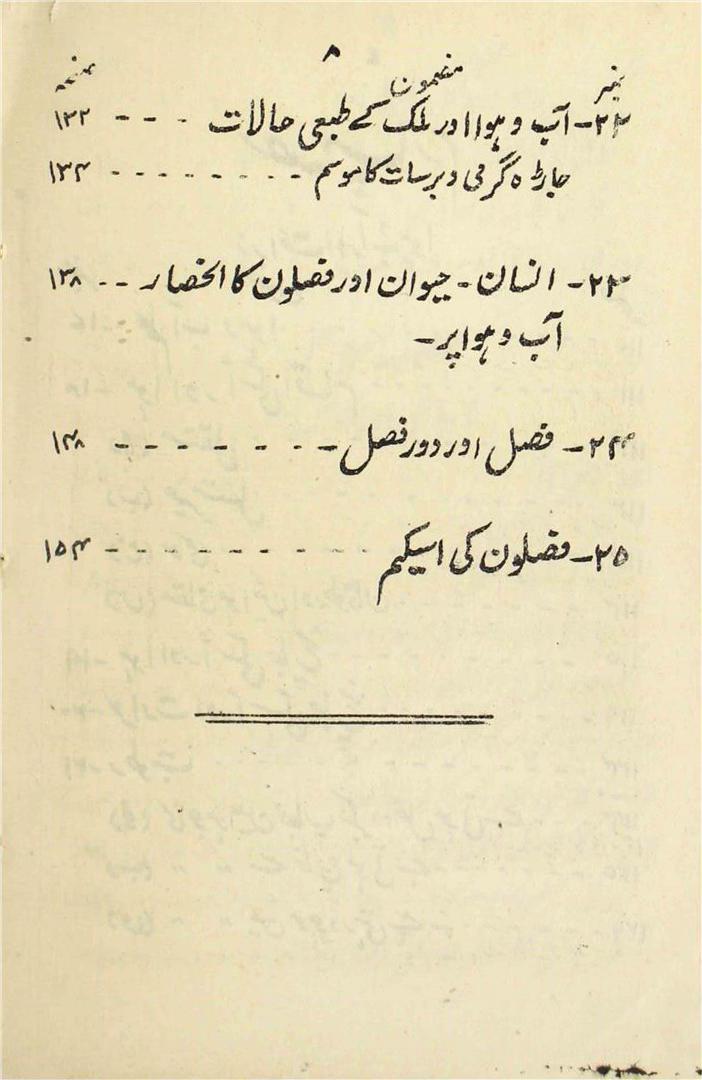 ۸
نمبر مضمون صفحہ
۲۲- آب و ہوا اور ملک کے طبعی حالات - - - ۱۳۲
جاڑہ گرمی و برسات کا موسم - - - - - - - - - ۱۳۴
۲۳- انسان - حیوان اور فصلون کا انحصار - - ۱۳۸
آب و ہوا پر-
۲۴- فصل اور دور فصل - - - - - - - ۱۴۸
۲۵- فصلون کی اسیکم - - - - - - - - - - ۱۵۴